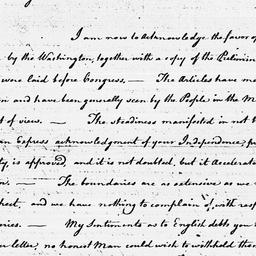 I am now to Acknowledge the favor of
by the Washington, together with a copy of the Prelimin
were laid before Congress. — The Articles have m
and have been generally seen by the People in the m
t of view. — The steadiness manifested in not t
an Express acknowledgment of your Independence, p
ty, is approved, and it is not doubted, but it Accelerat
— The boundaries are as extensive as we
hect, and we have nothing to complain of, with resp
eries. — My Sentiments as to English debts you
letter, no honest Man could wish to withhold them